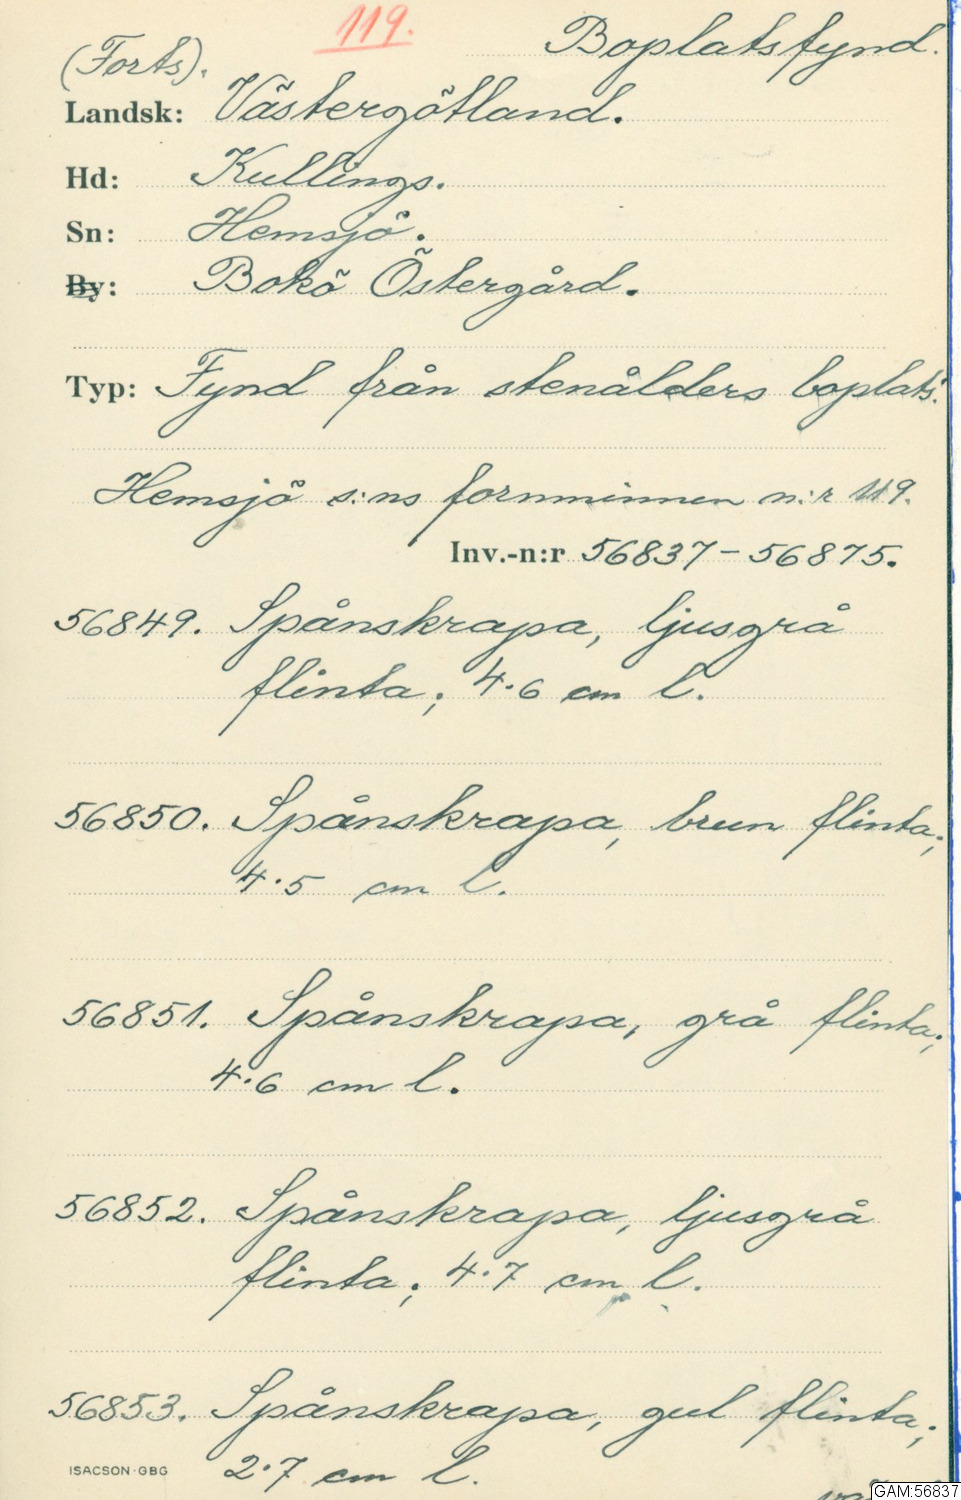 119.
Boplatsfynd.
(Forts).
Landsk: Västergötland.
Hd: Kullings.
Sn: Hemsjö.
By: Bokö Östergård.
Typ: Fynd från stenålders boplats.
Hemsjö s:ns fornminnen n:r 119.
Inv.-n:r 56837-56875.
56849. Spånskrapa, ljusgrå
flinta; 4.6 cm l.
56850. Spånskrapa, brun flinta;
4.5 cm l.
56851. Spånskrapa, grå flinta;
4.6 cm l.
56852. Spånskrapa, ljusgrå
flinta; 4.7 cm l.
56853. Spånskrapa, gul flinta;
2.7 cm l.
ISACSON·GBG
GAM:56837